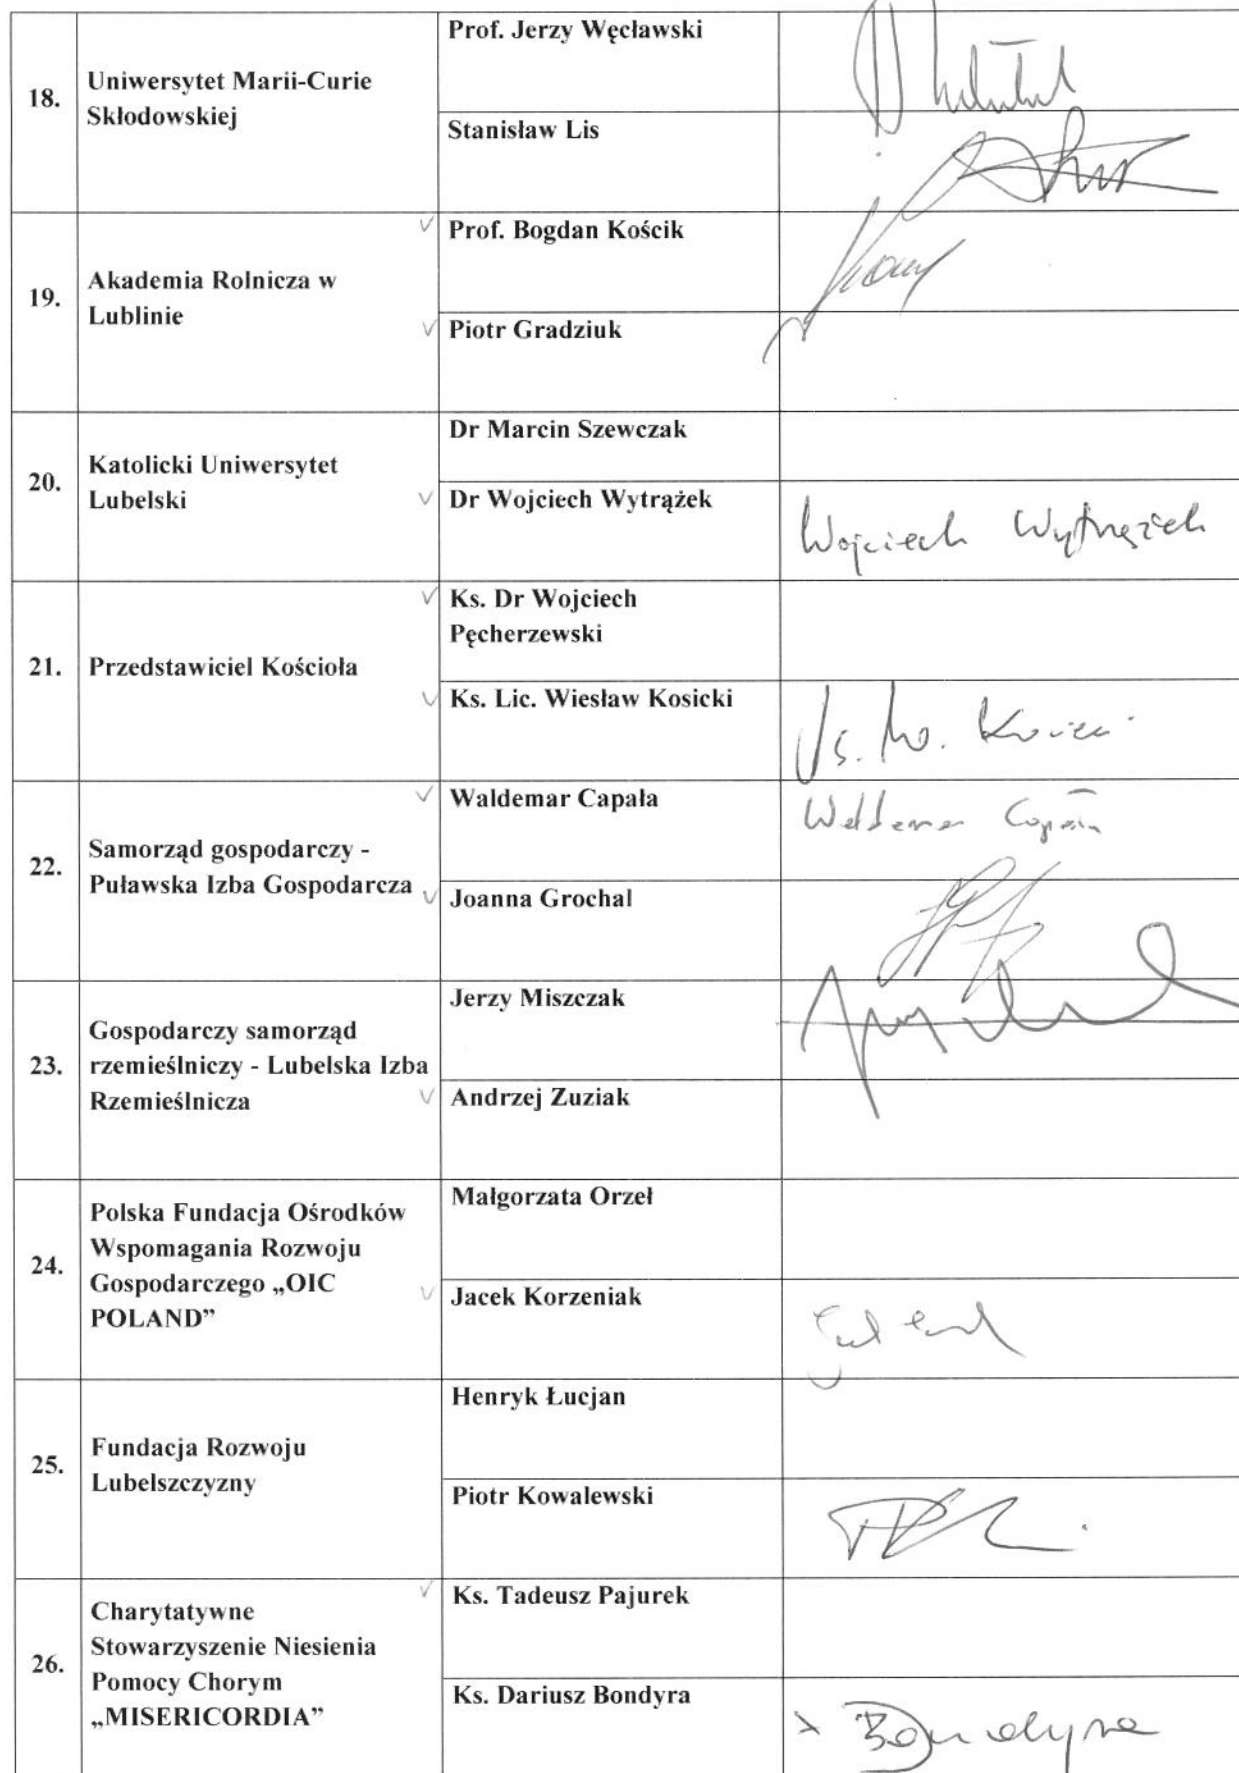 18.
Uniwersytet Marii-Curie
Skłodowskiej
Prof. Jerzy Węcławski
Stanisław Lis
19.
Akademia Rolnicza w
Lublinie
Prof. Bogdan Kościk
Piotr Gradziuk
20.
Katolicki Uniwersytet
Lubelski
Dr Marcin Szewczak
Dr Wojciech Wytrążek
Wojciech Wytrążek
21.
Przedstawiciel Kościoła
Ks. Dr Wojciech
Pęcherzewski
Ks. Lic. Wiesław Kosicki
Ks. W. Kosicki
22.
Samorząd gospodarczy -
Puławska Izba Gospodarcza
Waldemar Capała
Waldemar Capała
Joanna Grochal
23.
Gospodarczy samorząd
rzemieślniczy - Lubelska Izba
Rzemieślnicza
Jerzy Miszczak
Andrzej Zuziak
24.
Polska Fundacja Ośrodków
Wspomagania Rozwoju
Gospodarczego „OIC
POLAND”
Małgorzata Orzeł
Jacek Korzeniak
25.
Fundacja Rozwoju
Lubelszczyzny
Henryk Łucjan
Piotr Kowalewski
26.
Charytatywne
Stowarzyszenie Niesienia
Pomocy Chorym
„MISERICORDIA”
Ks. Tadeusz Pajurek
Ks. Dariusz Bondyra
x Bondyra